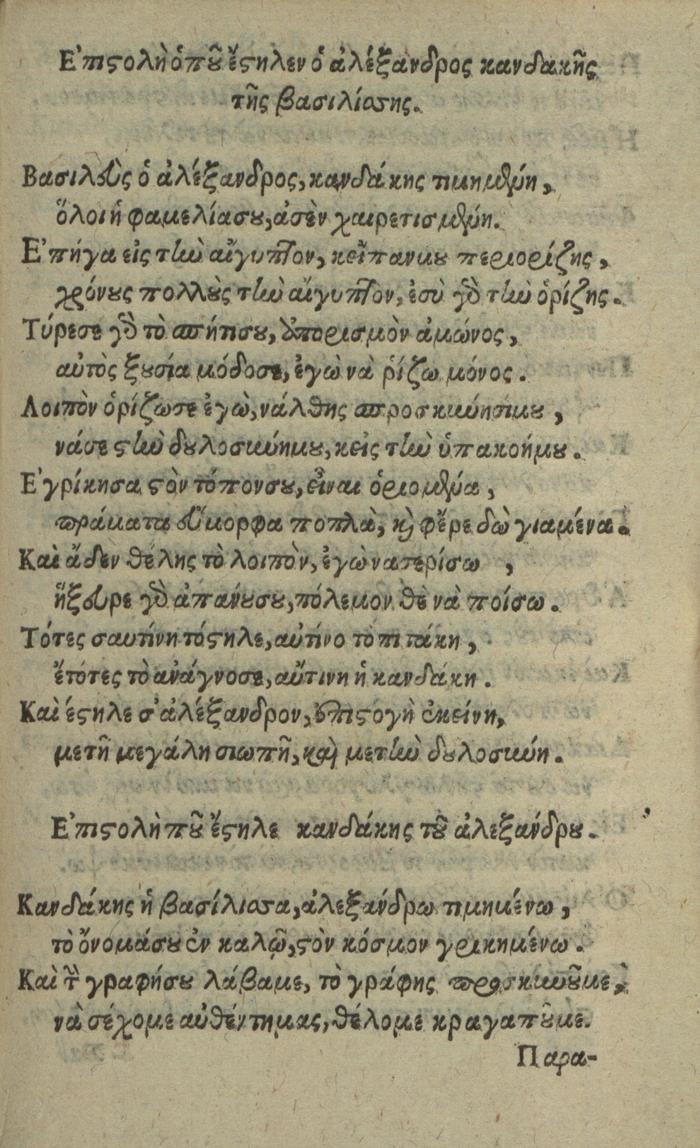 Ἐπιστολὴ ὁποῦ ἔστηλεν ὁ ἀλέξανδρος κανδακῆς
τῆς βασιλίσσης.
Βασιλεὺς ὁ ἀλέξανδρος, κανδάκης τιμημένη,
ὅλοι ἡ φαμελίασου, ἀσὲν χαιρετισμένη.
Ἐπήγα εἰς τὴν αἴγυπτον, κεῖπανμου περιορίζης,
χρόνους πολλοὺς τὴν αἴγυπτον, ἐσὺ γὰρ τὴν ὁρίζης.
Τύρεσε γὰρ τὸ σπήτισου, ὑπορισμὸν ἀμώνος,
αὐτὸς ξουσία μόδοσε, ἐγὼ νὰ ῥίζω μόνος.
Λοιπὸν ὁρίζωσε ἐγὼ, νάλθης προσκυνησίμου,
νάσε στὴν δουλοσυνημου, κεἰς τὴν ὑπακοήμου.
Ἐγρίκησα στὸν τόπονσου, εἶναι ὁριομένα,
πράματα εὔμορφα ποπλὰ, καὶ φέρε δὼ γιαμένα.
Καὶ ἄδεν θέλης τὸ λοιπὸν, ἐγὼ νατερίσω ,
ἤξευρε γὰρ ἀπανουσου, πόλεμον θὲ νὰ ποίσω.
Τότες σαυτίνη τόστηλε, αὐτίνο τὸ πιτάκη,
ἔτότες τὸ ἀνάγνοσε, αὔτινη ἡ κανδάκη.
Καὶ έστηλε σ' ἀλέξανδρον, ἐπιστογὴ ἐκείνη,
μετὴ μεγάλη σιωπῆ, καὶ μετὴν δουλοσύνη.
Ἐπιστολὴ ποῦ ἔστηλε κανδάκης τοῦ ἀλεξάνδρου.
Κανδάκης ἡ βασίλισσα, ἀλεξάνδρω τιμημένω,
τὸ ὄνομάσου ἐν καλῶ, στὸν κόσμον γρικημένω.
Καὶ τὴν γραφήσου λάβαμε, τὸ γράφης προσκυνοῦμε,
νὰ σέχομε αὐθέντημας, θέλομε κραγαποῦμε.
Παρα-